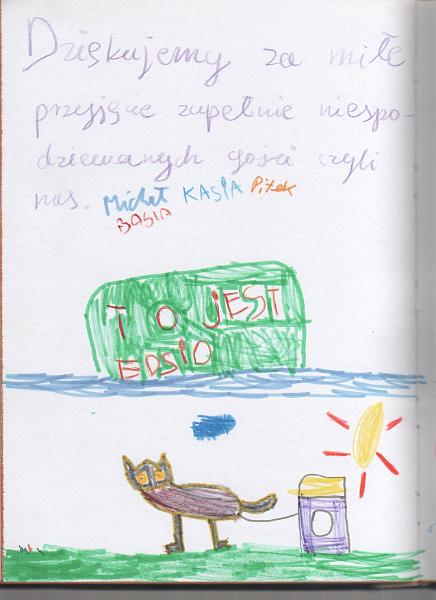 Dziękujemy za miłe
przyjęcie zupełnie niespo-
dziewanych gości czyli
nas. Michał KASIA Pitek
BASIA
TO JEST
EDSIO